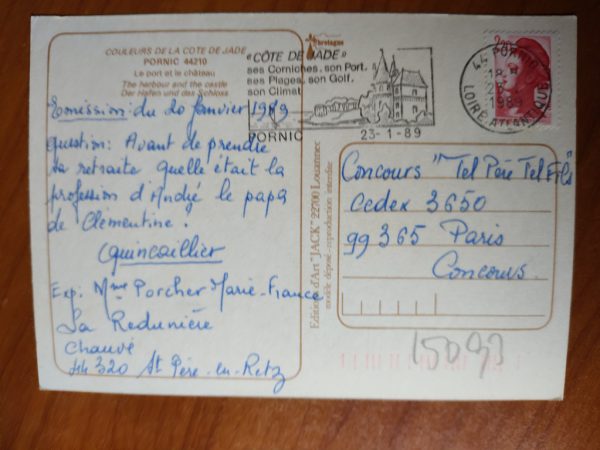 COULEURS DE LA COTE DE JADE
PORNIC 44210
Le port et le château
The harbour and the castle
Der Hafen und das Schloss
Emission: du 20 Janvier 1989
Question: Avant de prendre
sa retraite quelle était la
profession d'André le papa
de Clémentine?
Quincaillier
Exp: Mme Porcher Marie-France
La Redunière
Chauvé
44320 St Père-en-Retz
bretagne
«CÔTE DE JADE»
ses Corniches, son Port,
ses Plages, son Golf,
son Climat
PORNIC
23-1-89
44 PORNIC
18 H
1989
LOIRE ATLANTIQUE
Editions d'Art "JACK" 22700 Louannec
modèle déposé - reproduction interdite
Concours "Tel Père Tel Fils"
Cedex 3650
99365 Paris
Concours.
15093